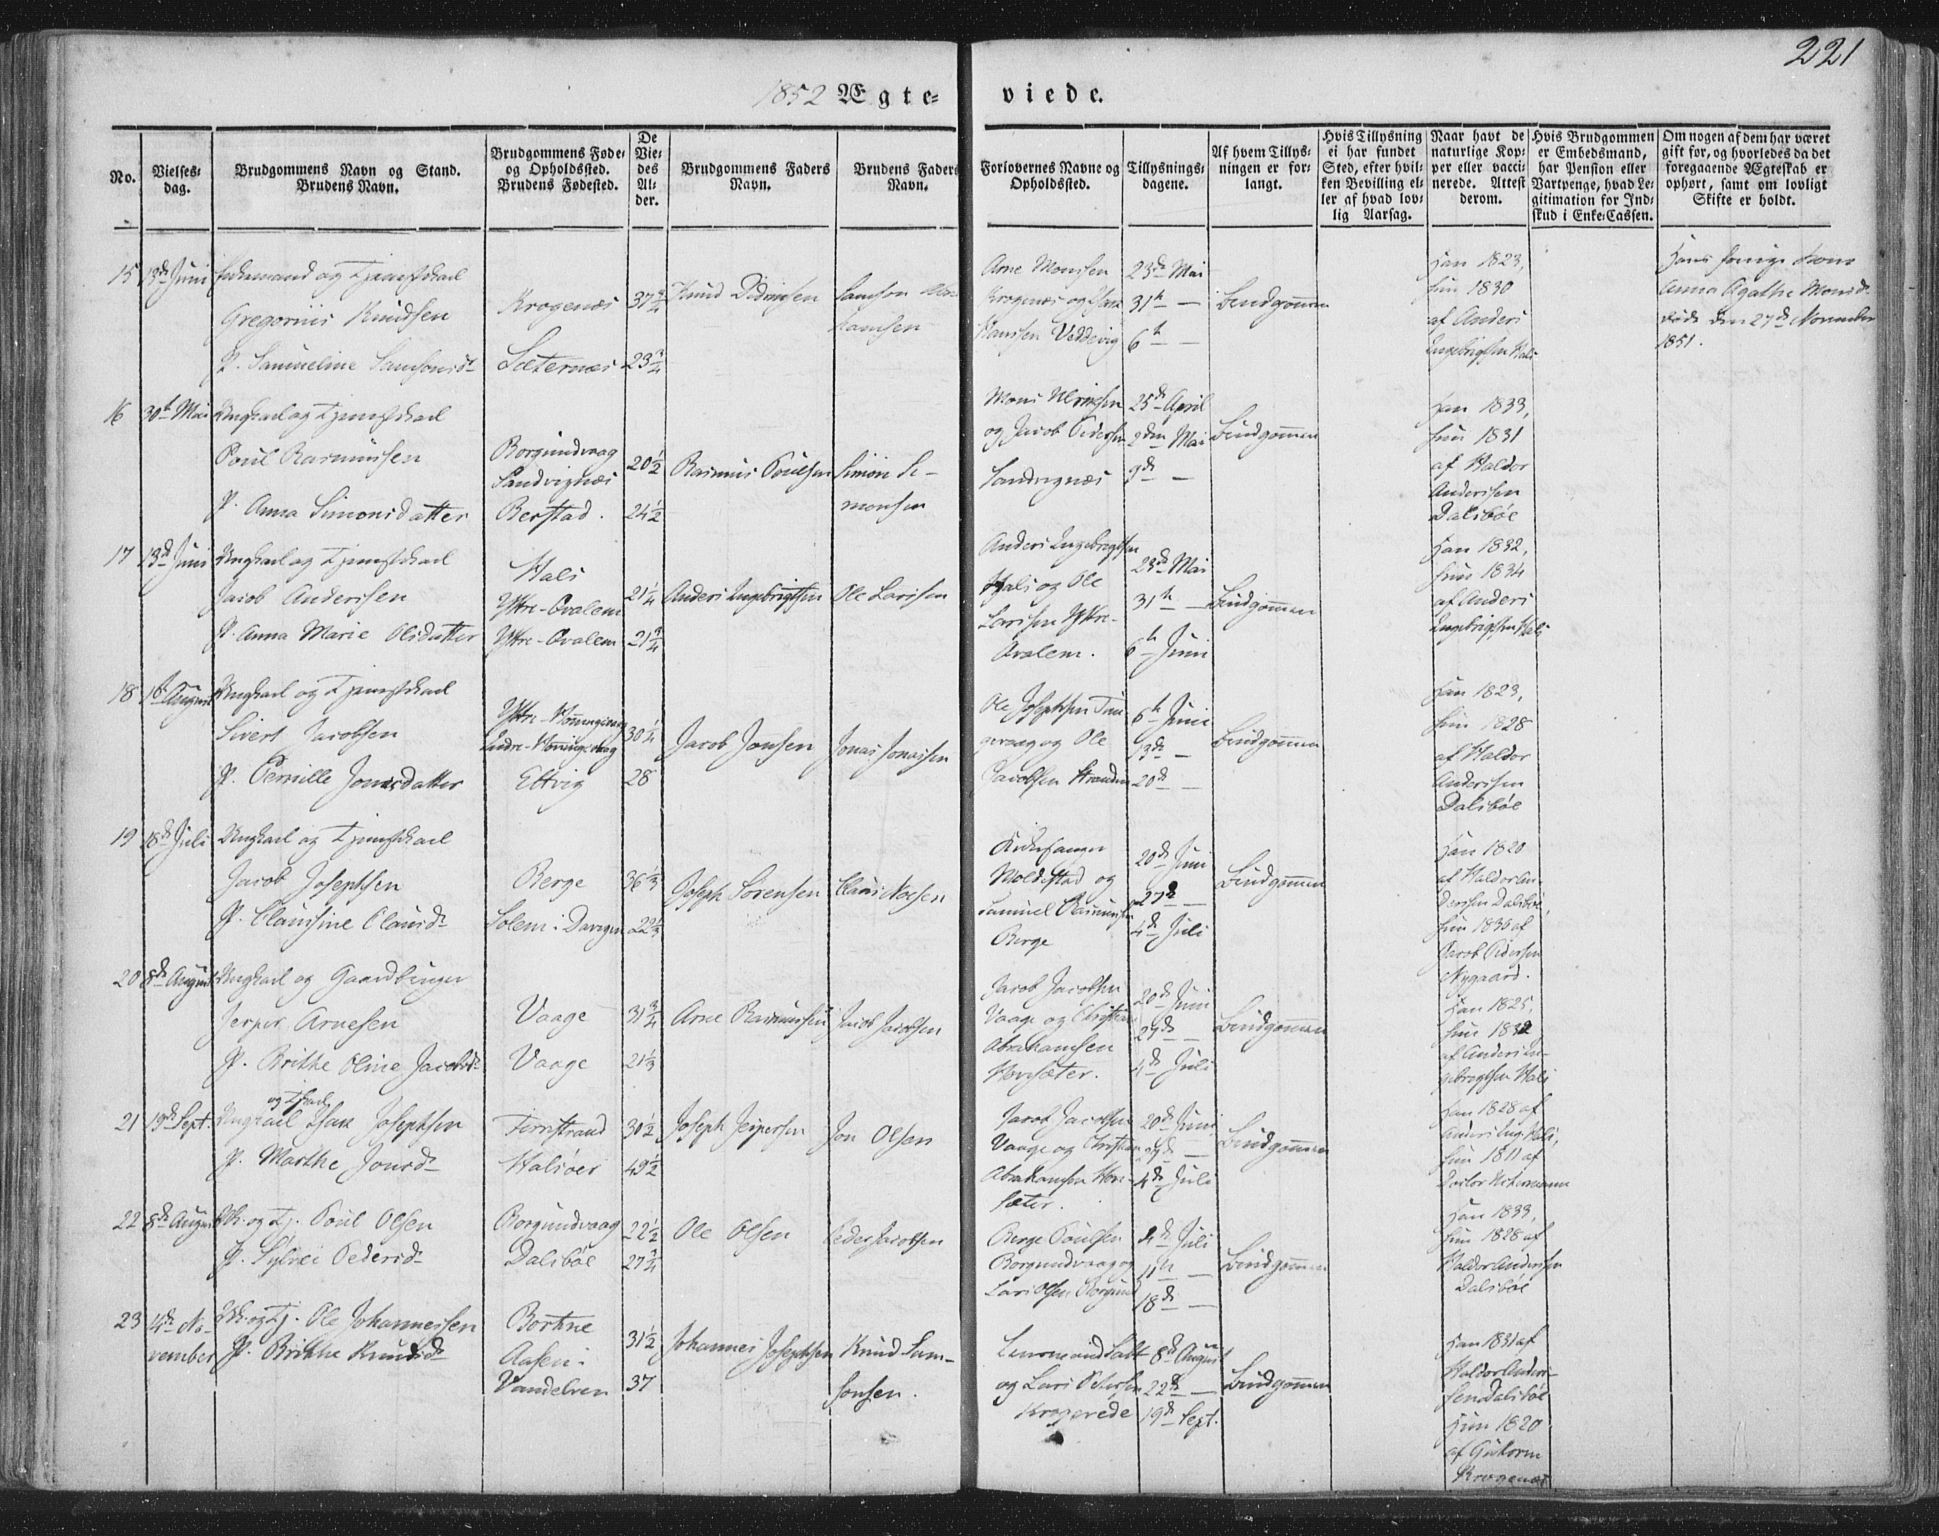 221
1852 Ægte- viede.
No.
Vielses-dag.
Brudgommens Navn og Stand. Brudens Navn.
Brudgommens Føde- og Opholdssted. Brudens Fødested.
De Vie- des Al- der.
Brudgommens Faders Navn.
Brudens Faders Navn.
Forlovernes Navne og Opholdssted.
Tillysnings-dagene.
Af hvem Tillys-ningen er for-langt.
Hvis Tillysning ei har fundet Sted, efter hvil-ken Bevilling el-ler af hvad lov-lig Aarsag.
Naar havt de naturlige Kop-per eller vacci-nerede. Attest derom.
Hvis Brudgommen er Embedsmand, har Pension eller Vartpenge, hvad Le-gitimation for Ind-skud i Enke-Cassen.
Om nogen af dem har været gift før, og hvorledes da det foregaaende Ægteskab er ophørt, samt om lovligt Skifte er holdt.
15 13de Juni Enkemand og Tjenestekarl
Gregorius Knudsen
P. Samueline Samsonsdr
Krogenæs
Sæternæs
37 3/4
23 3/4
Knud Didriksen
Samson
Arne Monsen
Krogenæs og
Hanssen Veddevig
23de Mai
31te —
6te —
Brudgommen
Han 1823,
hun 1830
af Anders
Engebrigtsen Hals
Hans forrige Kone
Anna Agathe Monsdr
døde den 27de November
1851.
16 30te Mai Ungkarl og Tjenestekarl
Poul Rasmussen
P. Anna Simonsdatter
Borgundvaag
Sandvignæs
Berstad.
20 1/2
24 1/2
Rasmus Poulsen
Simon Si-
monsen
Mons Ulriksen
og Jacob Pedersen
Sandvignæs
25de April
2den Mai
9de —
Brudgommen
Han 1833,
hun 1831
af Haldor
Andersen
Dalsbøe
17 13de Juni Ungkarl og Tjenestekarl
Jacob Andersen
P. Anna Marie Olsdatter
Hals
Ytre-Qvalem
Ytre-Qvalem
21 1/4
21 3/4
Anders Engebrigtsen
Ole Larssen
Anders Engebregtsen
Hals og Ole
Larssen Yttre-
Qvalem.
23de Mai
31te —
6te Juni
Brudgommen
Han 1832,
hun 1834
af Anders
Engebrigtsen Hals
18 1ste August Ungkarl og Tjenestekarl
Sivert Jacobsen
P. Pernille Jonasdatter
Ettvig
30 1/4
28
Jacob Jonsen
Jonas Jonassen
Ole Josephsen
og Ole
Jacobsen Stranden
6te Juni
13de —
20de —
Brudgommen
Han 1823,
hun 1828
af Haldor
Andersen
Dalsbøe
19 18de Juli Ungkarl og Tjenestekarl
Jacob Josephsen
P. Claussine Clausdr
Berge
Solem
36 1/3
22 1/3
Joseph Sørensen
Claus
Kirkesanger
Moldestad og
Samuel Rasmussen
Berge
20de Juni
27de —
4de Juli
Brudgommen
Han 1820
af Haldor An-
dersen Dalsbøe,
hun 1835 af
Jacob Pedersen
Nygaard.
20 8de August Ungkarl og Gaardbruger
Jesper Arnesen
P. Brithe Oline Jacobsdr
Vaage
Vaage
31 3/4
21 1/3
Arne Rasmussen
Jacob Jacobsen
Jacob Jacobsen
Vaage og Christian
Abrahamsen
Hovsæter.
20de Juni
27de —
4de Juli
Brudgommen
Han 1825,
hun 1832
af Anders En-
gebregtsen Hals
21 19de Sept. Ungkarl Isak Josephsen
P. Marthe Jonsdr
Halsøer
30 1/2
49 1/2
Joseph Jespersen
Jon Olsen
Jacob Jacobsen
Vaage og Christian
Abrahamsen Hov-
sæter.
20de Juni
27de —
4de Juli
Brudgommen
Han 1828 af
Anders Eng. Hals,
hun 1811 af
22 8de August Uk. og Tj. Poul Olsen
P. Sylvei Pedersdr
Borgundvaag
Dalsbøe
22 1/2
27 3/4
Ole Olsen
Peder Jacobsen
Berge Poulsen
Borgundvaag og
Lars Olsen Borgund
4de Juli
11te —
18de —
Brudgommen
Han 1833,
hun 1828 af
Haldor Andersen
Dalsbøe
23 14de No-
vember Uk. og Tj. Ole Johannessen
P. Brithe Knudsdr
Bortne
Aasen.
Vandelven
31 1/2
37
Johannes Josephsen
Knud Sam-
sonsen.
Lensmand Salt
og Lars Petersen
8de August
22de —
19de Sept.
Brudgommen
Han 1831 af
Haldor Ander-
sen Dalsbøe
Hun 1820
af Guttorm
Krogenæs